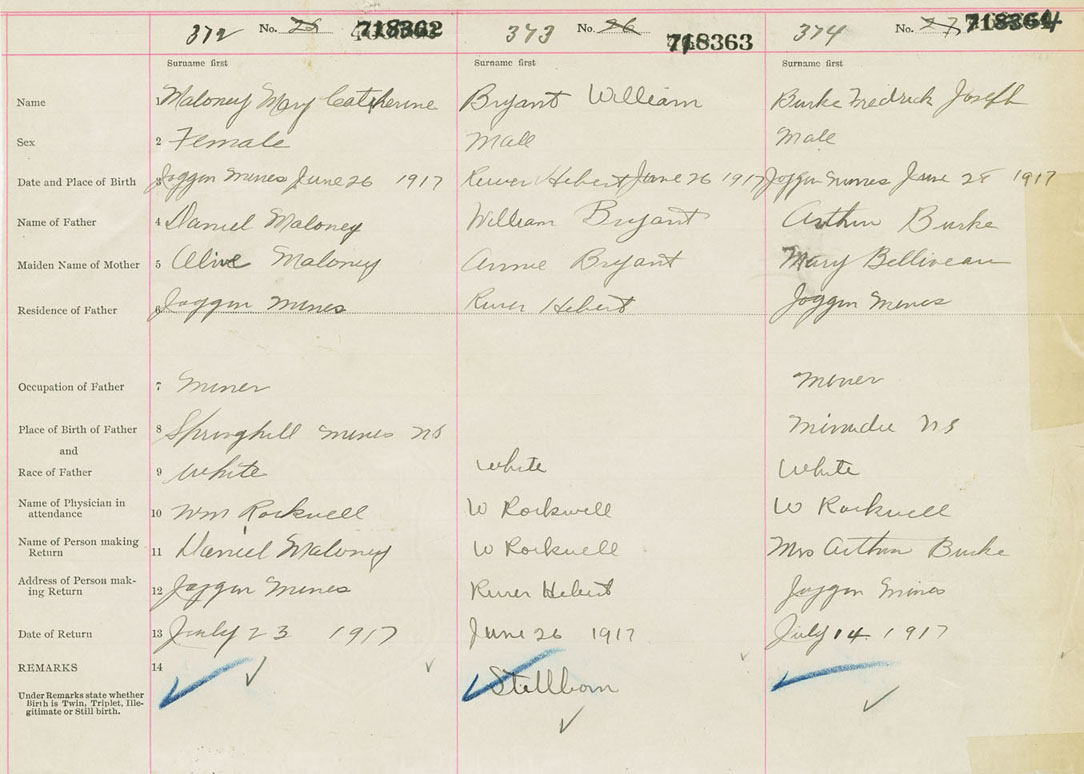 372 No. 25 718362 373 No. 26 718363 374 No. 27 718364
Surname first Surname first Surname first
Name 1 Maloney Mary Catherine Bryant William Burke Fredrick Joseph
Sex 2 Female Male Male
Date and Place of Birth 3 Joggin Mines June 26 1917 River Hebert June 26 1917 Joggin Mines June 28 1917
Name of Father 4 Daniel Maloney William Bryant Arthur Burke
Maiden Name of Mother 5 Olive Maloney Annie Bryant Mary Belliveau
Residence of Father 6 Joggin Mines River Hebert Joggin Mines
Occupation of Father 7 Miner Miner
Place of Birth of Father 8 Springhill Mines NS Minudie NS
and
Race of Father 9 White White White
Name of Physician in
attendance 10 Wm Rockwell W Rockwell W Rockwell
Name of Person making
Return 11 Daniel Maloney W Rockwell Mrs Arthur Burke
Address of Person mak-
ing Return 12 Joggin Mines River Hebert Joggin Mines
Date of Return 13 July 23 1917 June 26 1917 July 14 1917
REMARKS 14 Stillborn
Under Remarks state whether
Birth is Twin, Triplet, Ille-
gitimate or Still birth.